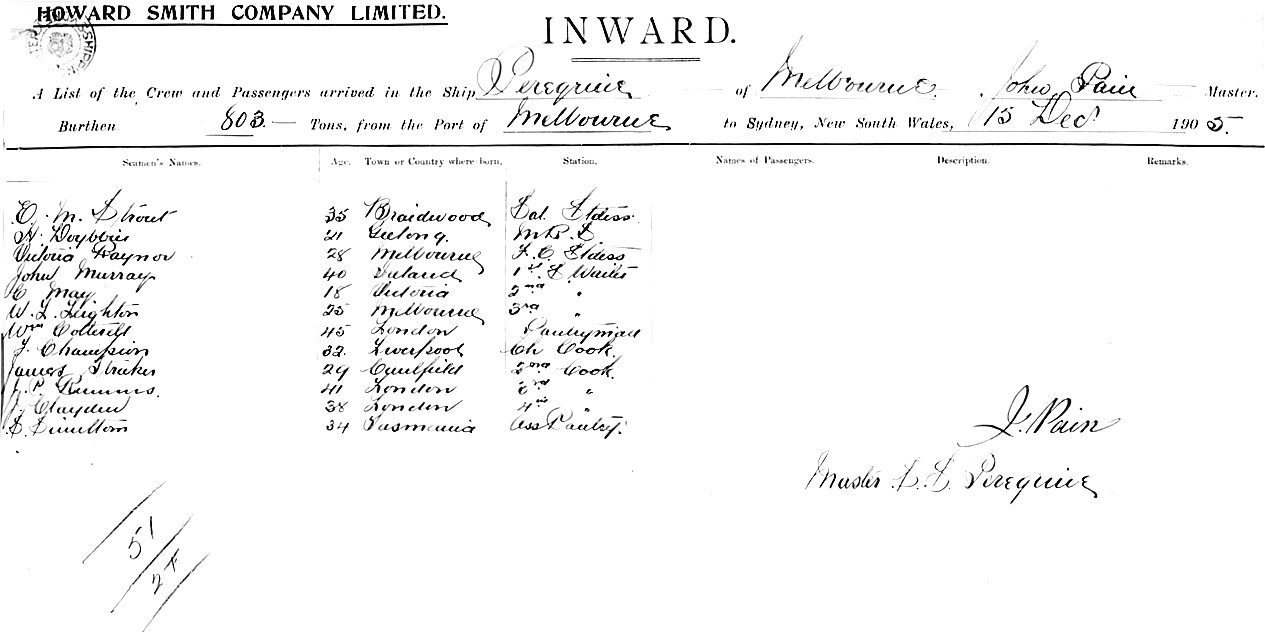 HOWARD SMITH COMPANY LIMITED.
INWARD.
A List of the Crew and Passengers arrived in the Ship Peregrine of Melbourne, John Pain Master.
Burthen 803 Tons, from the Port of Melbourne to Sydney, New South Wales, 15 Dec 1905.
Seamen's Names. Age. Town or Country where born. Station. Names of Passengers. Description. Remarks.
E. M. Strout 35 Braidwood Sal. Stdess.
H. 21 Geelong.
Victoria Raynor 28 Melbourne F. C. Stdess
John Murray 40 Ireland 1st S. Waiter
C May 18 Victoria 2nd "
W. L. Leighton 25 Melbourne 3rd "
Wm Cotterell 45 London Pantryman
J. Champion 32. Liverpool Ch Cook.
James 29 Caulfield 2nd Cook.
J. P. 41 London 3rd "
J. Clayden 38 London 4th "
S. 34 Tasmania Ass Pantry.
J. Pain
Master S. S. Peregrine
51
27